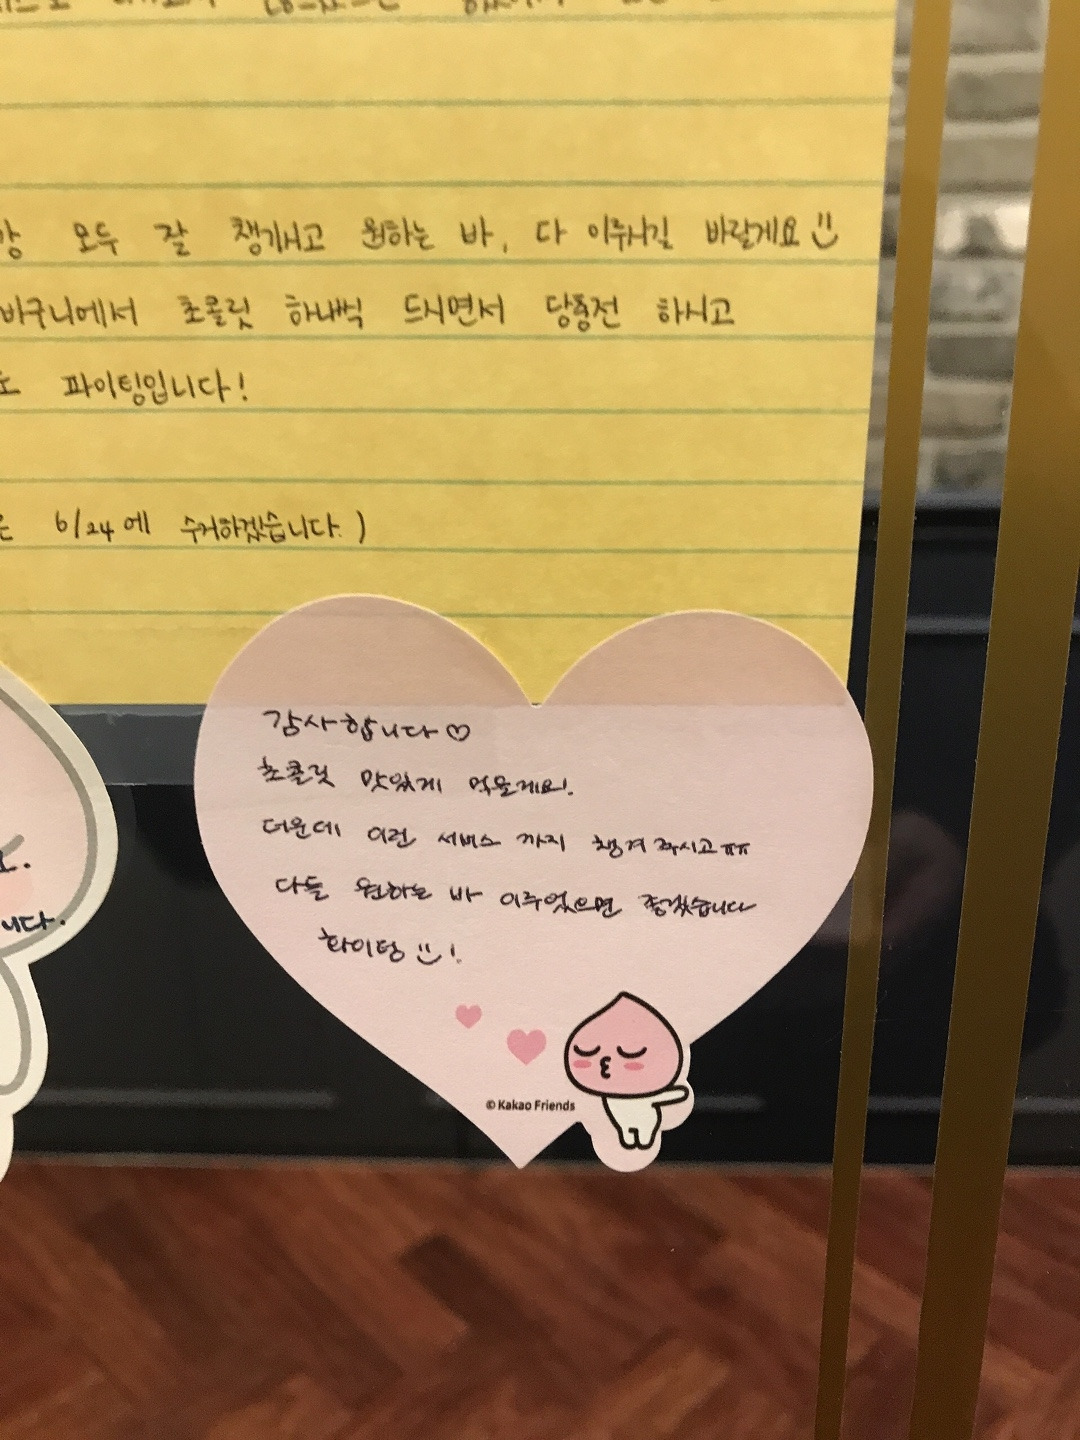 모두 잘 챙기시고 원하는 바, 다 이루시길 바랄게요
바구니에서 초콜릿 하나씩 드시면서 당충전 하시고
파이팅입니다!
6/24에 수거하겠습니다.)
감사합니다♡
초콜릿 맛있게 먹을게요!
더운데 이런 서비스 까지 챙겨주시고ㅠㅠ
다들 원하는 바 이루었으면 좋겠습니다
화이팅 !
니다.
© Kakao Friends